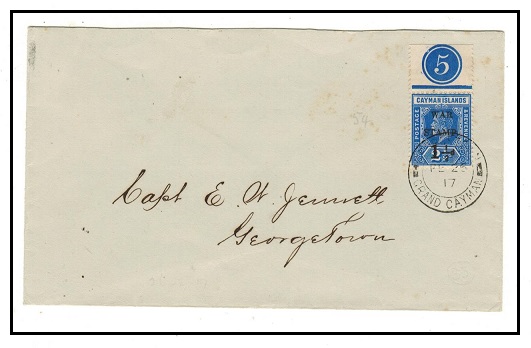 5
CAYMAN ISLANDS
POSTAGE
& REVENUE
WAR
STAMP.
1½d
FE 26
17
GRAND CAYMAN
Capt E. W. Jennett
Georgetown